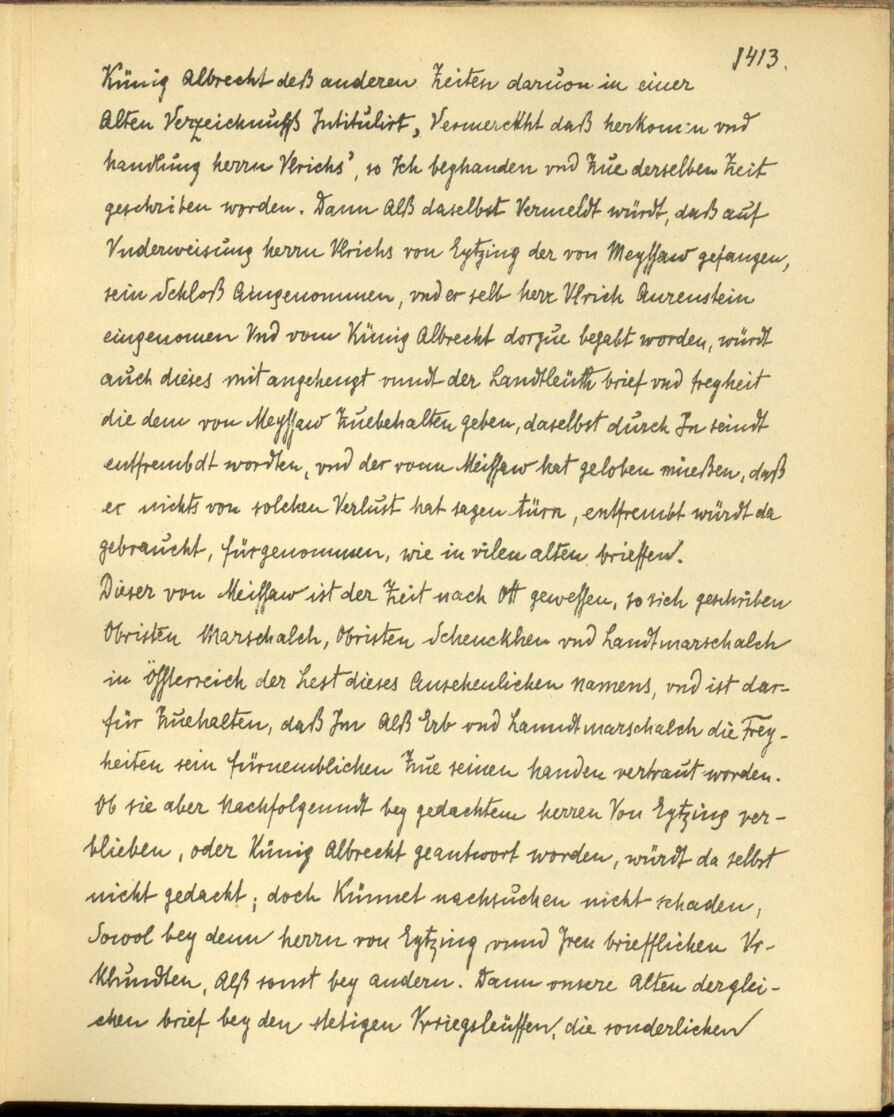 1413.
Künig Albrecht deß anderen Zeiten daruon in einer
Alten Verzeichnuß Intitulirt, Vermerckht daß herkomen vnd
handlung herrn Vlrichs', so Ich beyhanden vnd Zue derselben Zeit
geschriben worden. Dann Alß daselbst Vermeldt würdt, daß auf
Vnderweisung herrn Vlrichs von Eytzing der von Meyssaw gefangen,
sein Schloß Aingenommen, vnd er selb herr Vlrich Aurenstein
eingenomen Vnd vom Künig Albrecht dorzue begabt worden, würdt
auch dieses mit angehengt vnndt der Landtleüth brief vnd freyheit
die dem von Meyssaw Zuebehalten geben, daselbst durch In seindt
entfrembdt wordten, vnd der vonn Meissaw hat geloben müeßen, daß
er nichts von solchen Verlust hat sagen türn, entfrembt würdt da
gebraucht, fürgenommen, wie in vilen alten brieffen.
Dieser von Meissaw ist der Zeit nach Ott gewessen, so sich geschriben
Obristen Marschalch, Obristen Schenckhen vnd Landtmarschalch
in Össterreich der Lest dieses Ansehenlichen namens, vnd ist dar-
für Zuehalten, daß Im Alß Erb vnd Lanndtmarschalch die Frey-
heiten sein fürnemblichen Zue seinen handen vertraut worden.
Ob sie aber Nachfolgenndt bey gedachtem herren Von Eytzing ver-
blieben, oder Künig Albrecht geantwort worden, würdt da selbst
nicht gedacht; doch Künnet nachsuchen nicht schaden,
Sowol bey denn herrn von Eytzing vnnd Iren briefflichen Vr-
khundten, Alß sonst bey andern. Dann vnsere Alten derglei-
chen brief bey den stetigen Kriegsleüffen, die sonderlichen